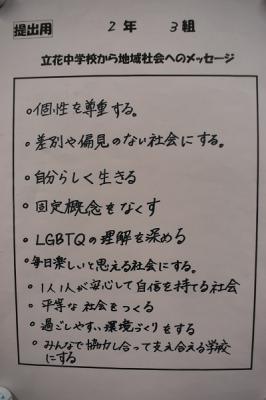 提出用 2年 3組
立花中学校から地域社会へのメッセージ
○個性を尊重する。
○差別や偏見のない社会にする。
○自分らしく生きる
○固定概念をなくす
○LGBTQの理解を深める
○毎日楽しいと思える社会にする。
○1人1人が安心して自信を持てる社会
○平等な社会をつくる
○過ごしやすい環境づくりをする
○みんなで協力し合って支え合える学校
にする